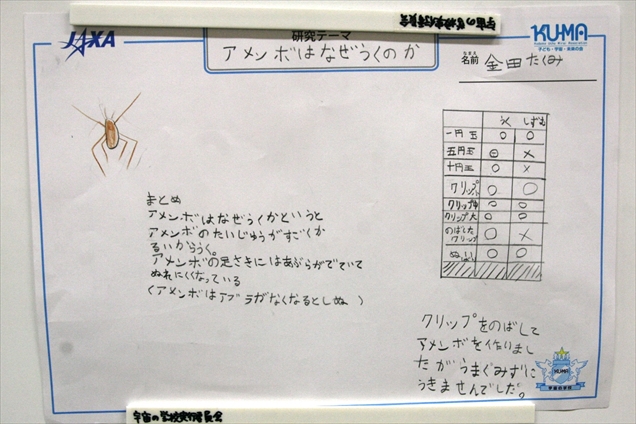 宇宙の学校実行委員会
JAXA
研究テーマ
アメンボはなぜうくのか
KUMA
子ども・宇宙・未来の会
なまえ
名前 金田たくみ
うく しずむ
一円玉 ○ ○
五円玉 ○ ×
十円玉 ○ ×
クリップ小 ○ ○
クリップ中 ○ ○
クリップ大 ○ ○
のばした
クリップ ○ ×
○ ○
まとめ
アメンボはなぜうくかというと
アメンボのたいじゅうがすごくか
るいからうく。
アメンボの足さきにはあぶらがでていて
ぬれにくくなっている
(アメンボはアブラがなくなるとしぬ)
クリップをのばして
アメンボを作りまし
たがうまくみずに
うきませんでした。
KUMA
宇宙の学校
宇宙の学校実行委員会